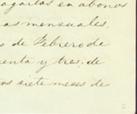 agarlas en abonos
as mensuales.
o de Febrero de
enta y tres. de
os siete meses de